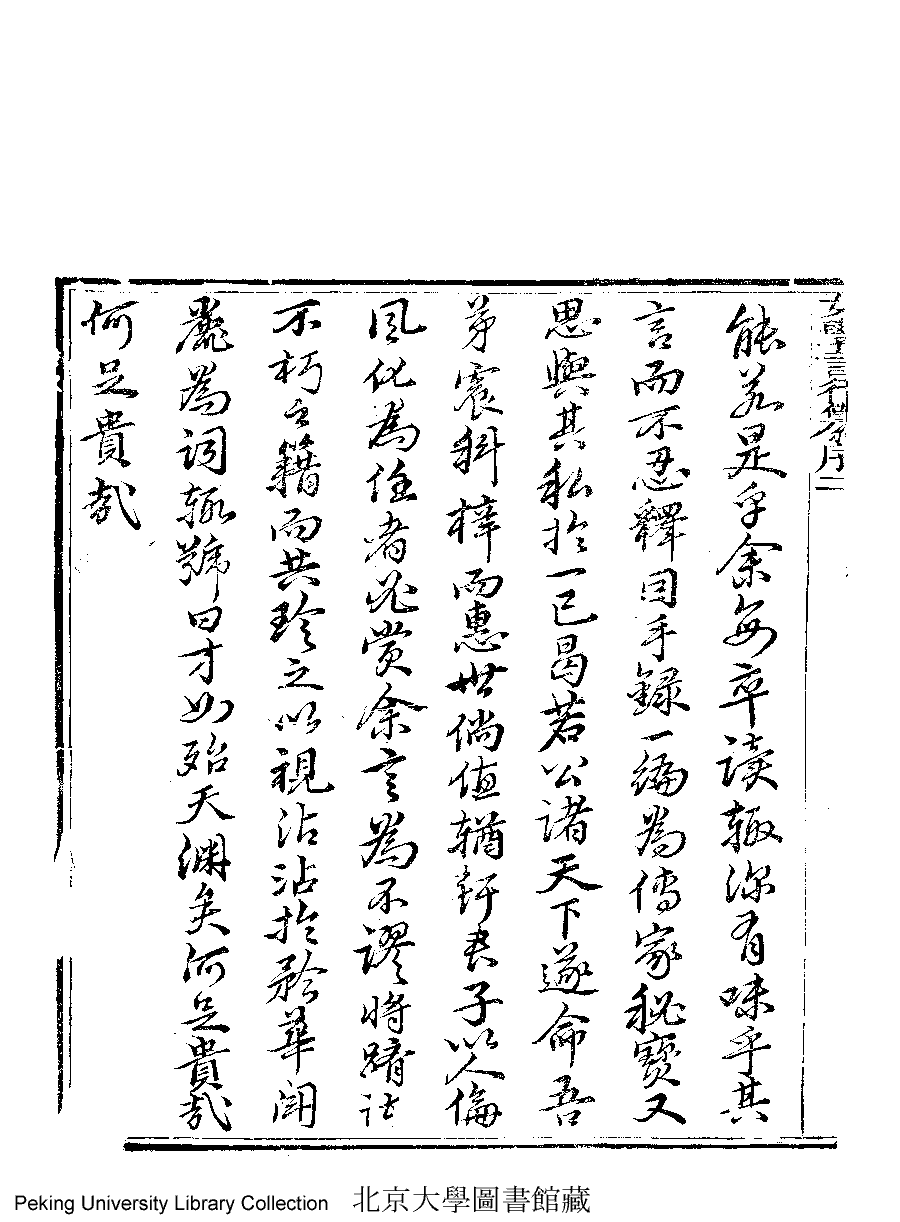 能若是乎余每卒读輙深有味乎其
言而不忍釋目手録一編為傳家秘寶又
思與其私於一已曷若公諸天下遂命吾
弟宸科梓而惠世倘值輶軒君子以人倫
風化為任者必赏余言為不謬將躋諸
不朽之籍而共珍之以視沾沾於矜華闘
麗為词輙號曰才如殆天渊矣何足貴哉
何足貴哉
言行彙序二
Peking University Library Collection 北京大學圖書館藏